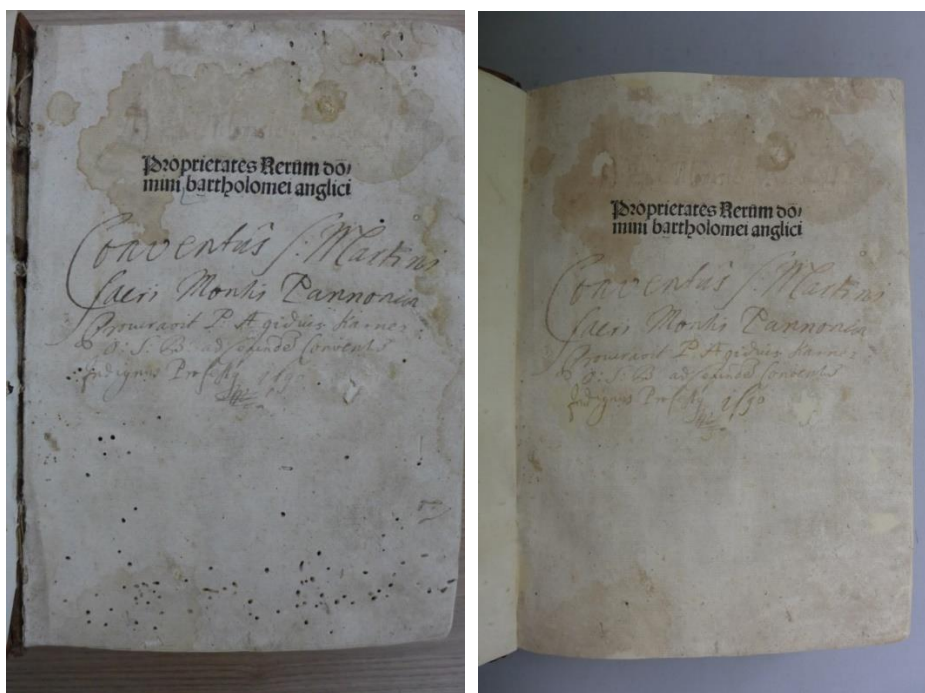 Proprietates Rerũm dõ/
mini bartholomei anglici
Conventûs S: Martini
Sacri Montis Pannoniæ
Procuravit P. Ægidius Karner
O: S: B: ad eundē Conventū
Indignus Professus 1690
Proprietates Rerũm dõ/
mini bartholomei anglici
Conventûs S: Martini
Sacri Montis Pannoniæ
Procuravit P. Ægidius Karner
O: S: B: ad eundē Conventū
Indignus Professus 1690